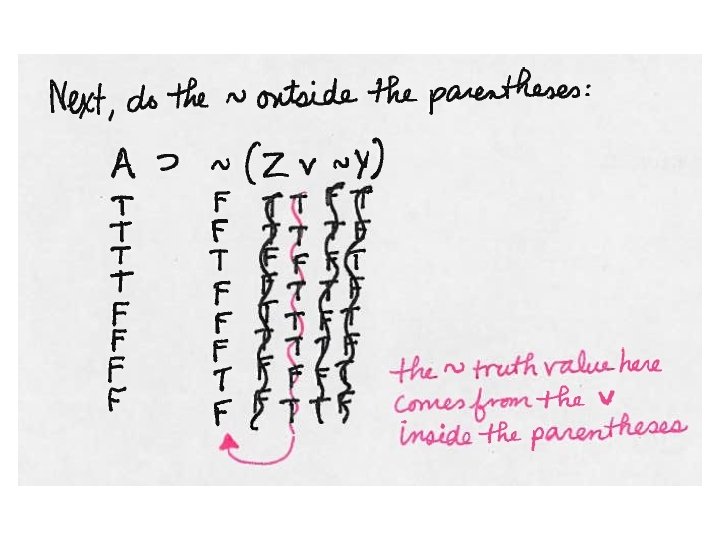 Next, do the ~ outside the parentheses:
A ⊃ ~ (Z v ~Y)
T F T T F T
T F T T T F
T T F F F T
T F F T T F
F F T T F T
F F T T T F
F T F F F T
F F F T T F
the ~ truth value here
comes from the v
inside the parentheses